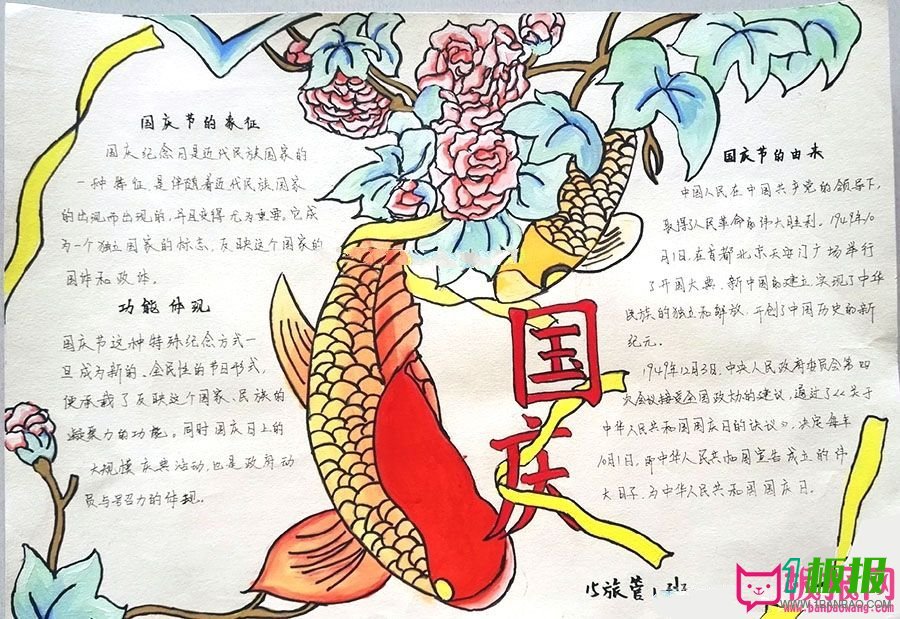 国庆节的象征
国庆纪念日是近代民族国家的
一种特征,是伴随着近代民族国家
的出现而出现的,并且变得尤为重要。它成
为一个独立国家的标志,反映这个国家的
国体和政体。
功能体现
国庆节这种特殊纪念方式一
旦成为新的、全民性的节日形式,
便承载了反映这个国家、民族的
凝聚力的功能。同时国庆日上的
大规模庆典活动,也是政府动
员与号召力的体现。
国庆
国庆节的由来
中国人民在中国共产党的领导下,
取得人民革命的伟大胜利。1949年10
月1日,在首都北京天安门广场举行
了开国大典。新中国的建立,实现了中华
民族的独立和解放,开创了中国历史的新
纪元。
1949年12月3日,中央人民政府委员会第四
次会议接受全国政协的建议,通过了《关于
中华人民共和国国庆日的决议》,决定每年
10月1日,即中华人民共和国宣告成立的伟
大日子,为中华人民共和国国庆日。
15旅管1班
板报网
www.banbaowang.com
板报
WWW.1BANBAO.COM